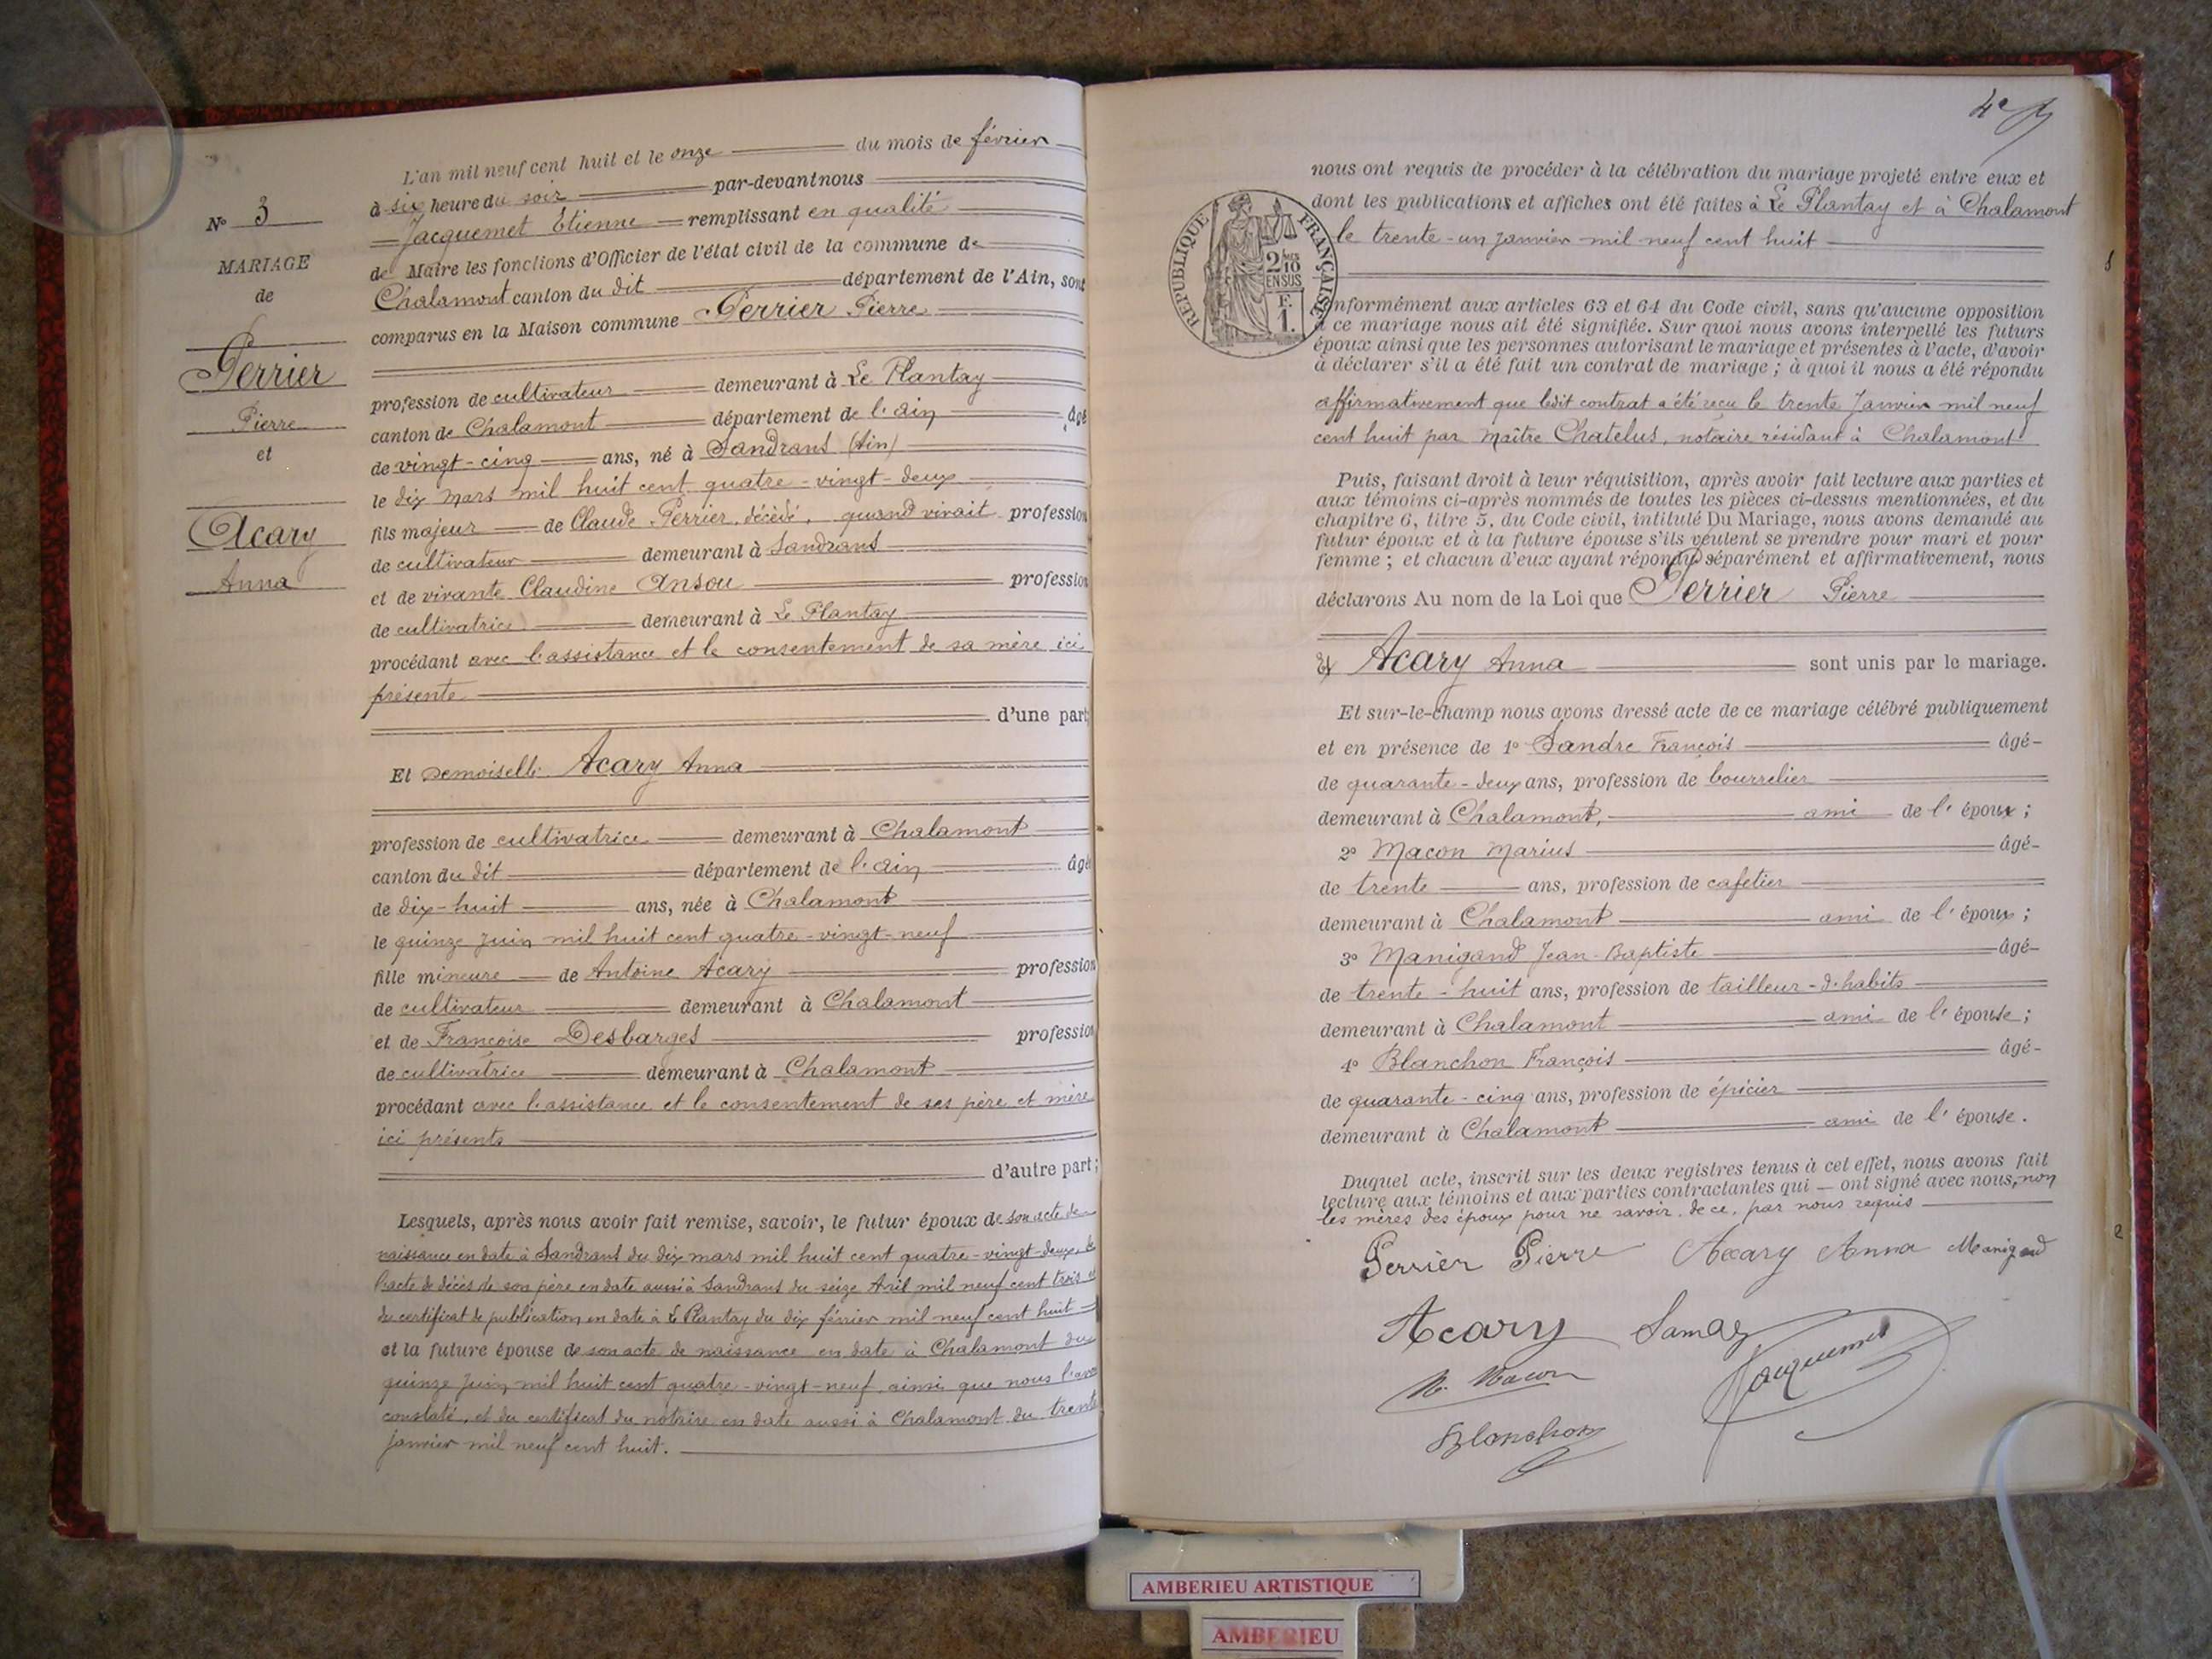 L'an mil neuf cent huit et le onze du mois de février
à six heure du soir par-devant nous
Jacquemet Etienne remplissant en qualité
de Maire les fonctions d'Officier de l'état civil de la commune de
Chalamont canton du dit département de l'Ain, sont
comparus en la Maison commune Perrier Pierre
profession de cultivateur demeurant à Le Plantay
canton de Chalamont département de l'Ain âgé
de vingt-cinq ans, né à Sandrans (Ain)
le dix mars mil huit cent quatre-vingt-deux
fils majeur de Claude Perrier, décédé, quand vivait profession
de cultivateur demeurant à Sandrans
et de vivante Claudine Ansou profession
de cultivatrice demeurant à Le Plantay
procédant avec l'assistance et le consentement de sa mère ici
présente
d'une part;
N° 3
MARIAGE
de
Perrier
Pierre
et
Acary
Anna
Et Demoiselle Acary Anna
profession de cultivatrice demeurant à Chalamont
canton du dit département de l'Ain âgé
de dix-huit ans, née à Chalamont
le quinze juin mil huit cent quatre-vingt-neuf
fille mineure de Antoine Acary profession
de cultivateur demeurant à Chalamont
et de Françoise Desbarges profession
de cultivatrice demeurant à Chalamont
procédant avec l'assistance et le consentement de ses père et mère
ici présents
d'autre part;
Lesquels, après nous avoir fait remise, savoir, le futur époux de son acte de
naissance en date à Sandrans du dix mars mil huit cent quatre-vingt-deux, de
l'acte de décès de son père en date aussi à Sandrans du seize Avril mil neuf cent trois et
du certificat de publication en date à Le Plantay du dix février mil neuf cent huit
et la future épouse de son acte de naissance en date à Chalamont du
quinze juin mil huit cent quatre-vingt-neuf ainsi que nous l'avons
constaté, et du certificat du notaire en date aussi à Chalamont du trente
janvier mil neuf cent huit.
4e
nous ont requis de procéder à la célébration du mariage projeté entre eux et
dont les publications et affiches ont été faites à Le Plantay et à Chalamont
le trente-un janvier mil neuf cent huit
RÉPUBLIQUE FRANÇAISE
2/10
EN SUS
F.
1.
conformément aux articles 63 et 64 du Code civil, sans qu'aucune opposition
à ce mariage nous ait été signifiée. Sur quoi nous avons interpellé les futurs
époux ainsi que les personnes autorisant le mariage et présentes à l'acte, d'avoir
à déclarer s'il a été fait un contrat de mariage; à quoi il nous a été répondu
affirmativement que ledit contrat a été reçu le trente Janvier mil neuf
cent huit par Maître Chatelus, notaire résidant à Chalamont
Puis, faisant droit à leur réquisition, après avoir fait lecture aux parties et
aux témoins ci-après nommés de toutes les pièces ci-dessus mentionnées, et du
chapitre 6, titre 5, du Code civil, intitulé Du Mariage, nous avons demandé au
futur époux et à la future épouse s'ils veulent se prendre pour mari et pour
femme; et chacun d'eux ayant répondu séparément et affirmativement, nous
déclarons Au nom de la Loi que Perrier Pierre
et Acary Anna sont unis par le mariage.
Et sur-le-champ nous avons dressé acte de ce mariage célébré publiquement
et en présence de 1° Sandre François âgé
de quarante-deux ans, profession de bourrelier
demeurant à Chalamont, ami de l'époux;
2° Macon Marius âgé
de trente ans, profession de cafetier
demeurant à Chalamont ami de l'époux;
3° Manigand Jean-Baptiste âgé
de trente-huit ans, profession de tailleur-d'habits
demeurant à Chalamont ami de l'épouse;
4° Blanchon François âgé
de quarante-cinq ans, profession de épicier
demeurant à Chalamont ami de l'épouse.
Duquel acte, inscrit sur les deux registres tenus à cet effet, nous avons fait
lecture aux témoins et aux parties contractantes qui ont signé avec nous, non
les mères des époux pour ne savoir, de ce, par nous requis
Perrier Pierre Acary Anna Manigand
Acary
M. Macon Jacquemet
Blanchon
AMBERIEU ARTISTIQUE
AMBERIEU